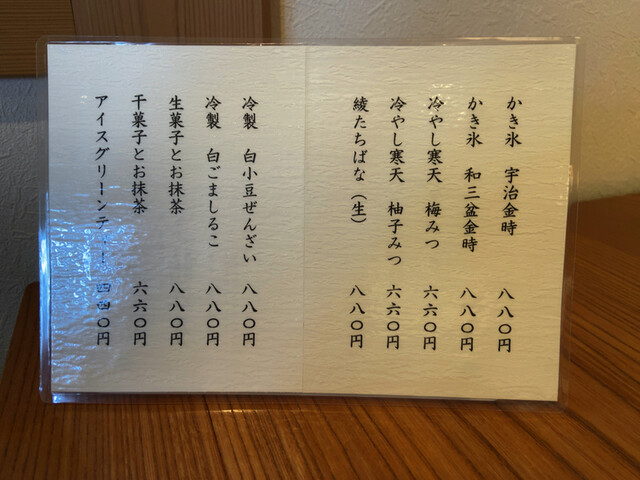 かき氷 宇治金時 八八〇円
かき氷 和三盆金時 八八〇円
冷やし寒天 梅みつ 六六〇円
冷やし寒天 柚子みつ 六六〇円
綾たちばな（生） 八八〇円
冷製 白小豆ぜんざい 八八〇円
冷製 白ごましるこ 八八〇円
生菓子とお抹茶 八八〇円
干菓子とお抹茶 六六〇円
アイスグリーンティー 四四〇円